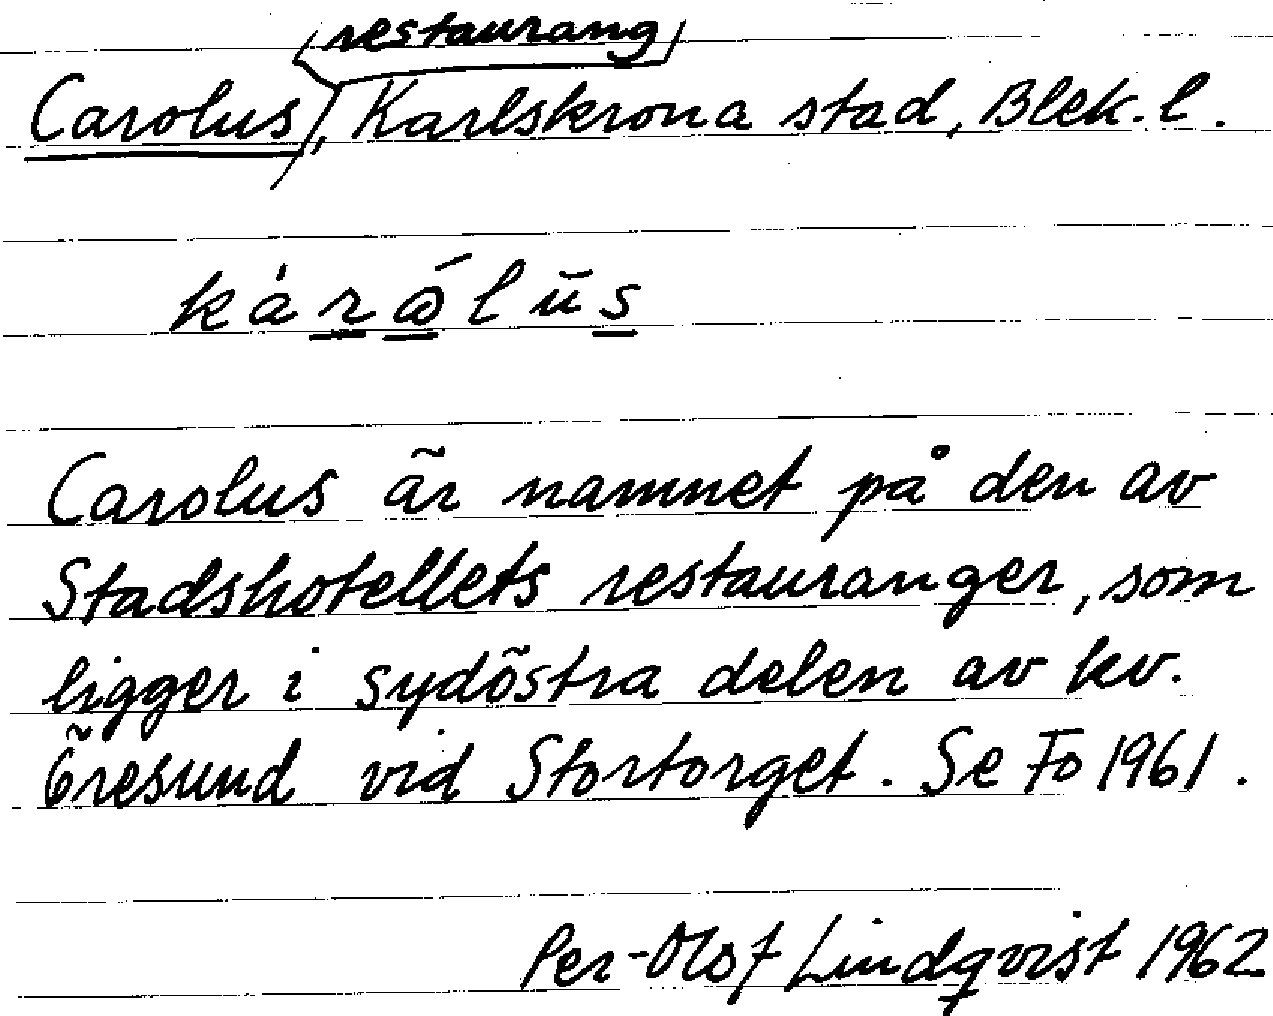 restaurang
Carolus, Karlskrona stad, Blek. l.
Carolus är namnet på den av
Stadshotellets restauranger, som
ligger i sydöstra delen av kv.
Öresund vid Stortorget. Se Fo 1961.
Per-Olof Lindqvist 1962